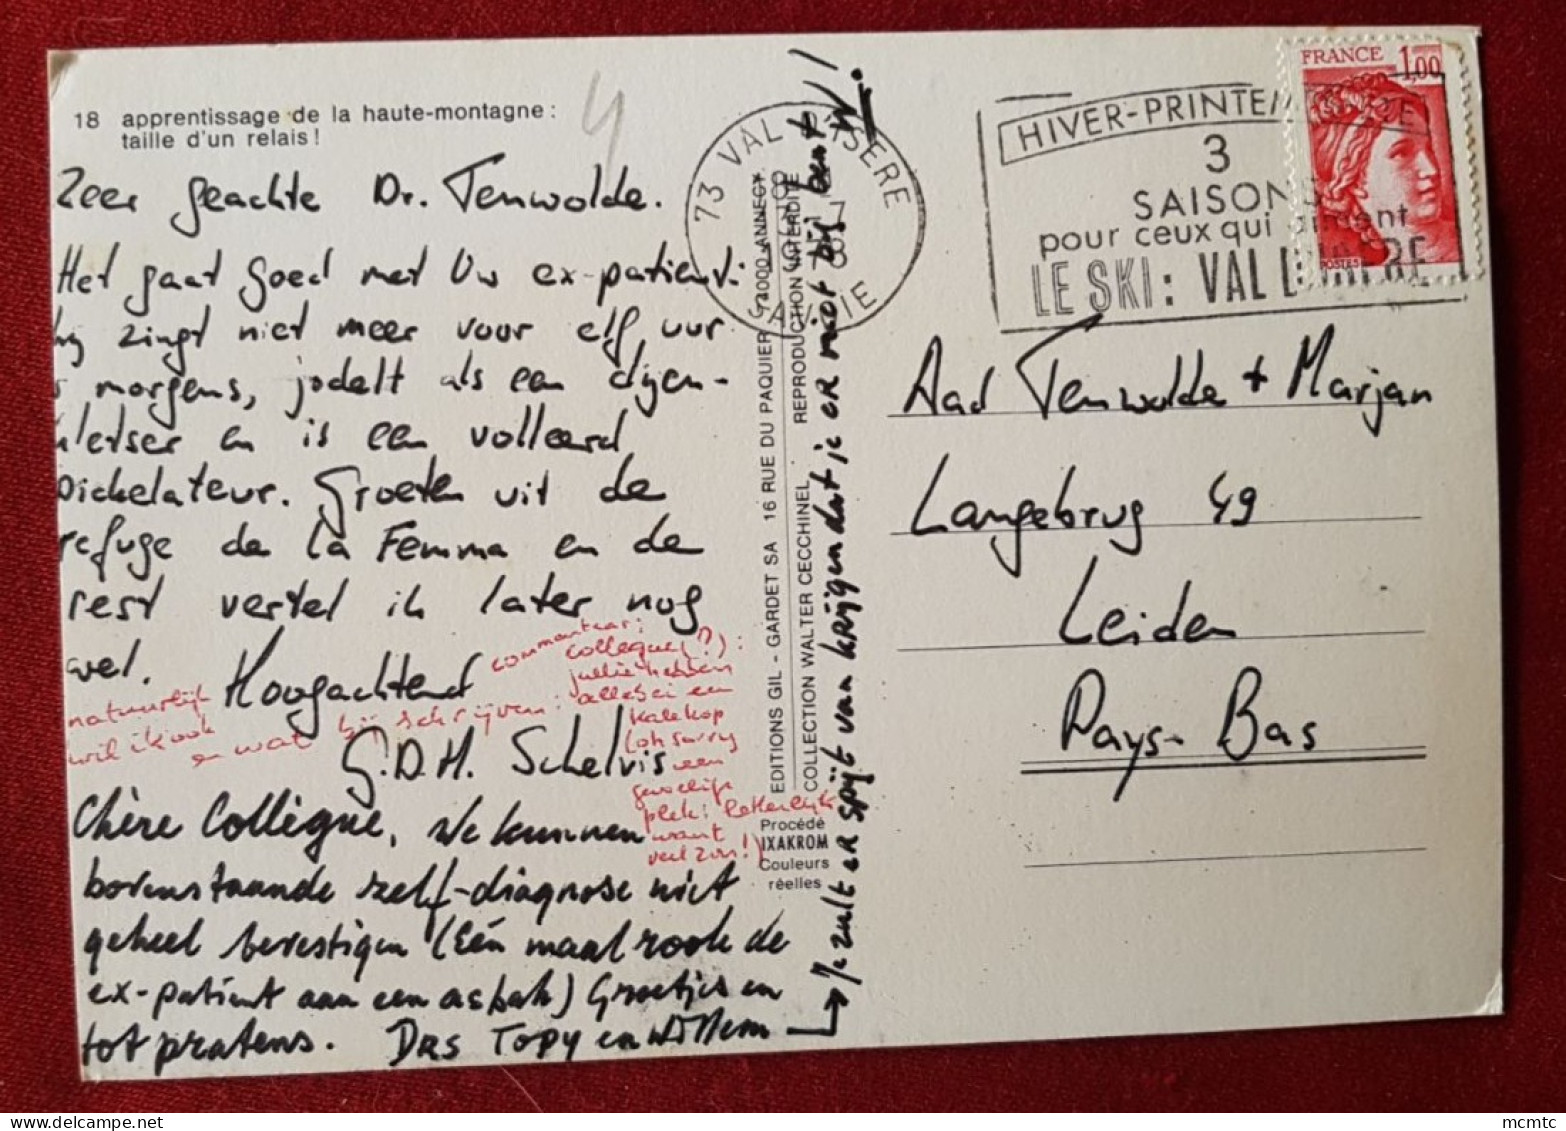 18 apprentissage de la haute-montagne :
taille d'un relais !
Zeer geachte Dr. Tenwolde.
Het gaat goed met Uw ex-patient:
hij zingt niet meer voor elf uur
's morgens, jodelt als een
en is een volleerd
pickelateur. Groeten uit de
refuge de la Femma en de
rest vertel ik later nog
wel. Hoogachtend
G.D.H. Schelvis
commentaar:
collegue(?):
jullie hebben
allebei een
kale kop
(oh sorry
een
gevoelige
plek: letterlijk
want
veel zon!)
natuurlijk
wil ik ook
en wat bij schrijven:
Chère Collègue, We kunnen
bovenstaande zelf-diagnose niet
geheel bevestigen (Eén maal rook de
ex-patient aan een asbak) Groetjes en
tot pratens. Drs Topy en Willem
Je zult er spijt van krijgen dat je er niet bij bent!
W.
EDITIONS GIL - GARDET SA 16 RUE DU PAQUIER 74000 ANNECY
COLLECTION WALTER CECCHINEL REPRODUCTION INTERDITE
Procédé
IXAKROM
Couleurs
réelles
73 VAL D'ISERE
SAVOIE
HIVER-PRINTEM
3
SAISONS
pour ceux qui aiment
LE SKI : VAL D'ISERE
FRANCE 1,00
POSTES
Aad Tenwolde + Marjan
Langebrug 49
Leiden
Pays-Bas
mcmtc